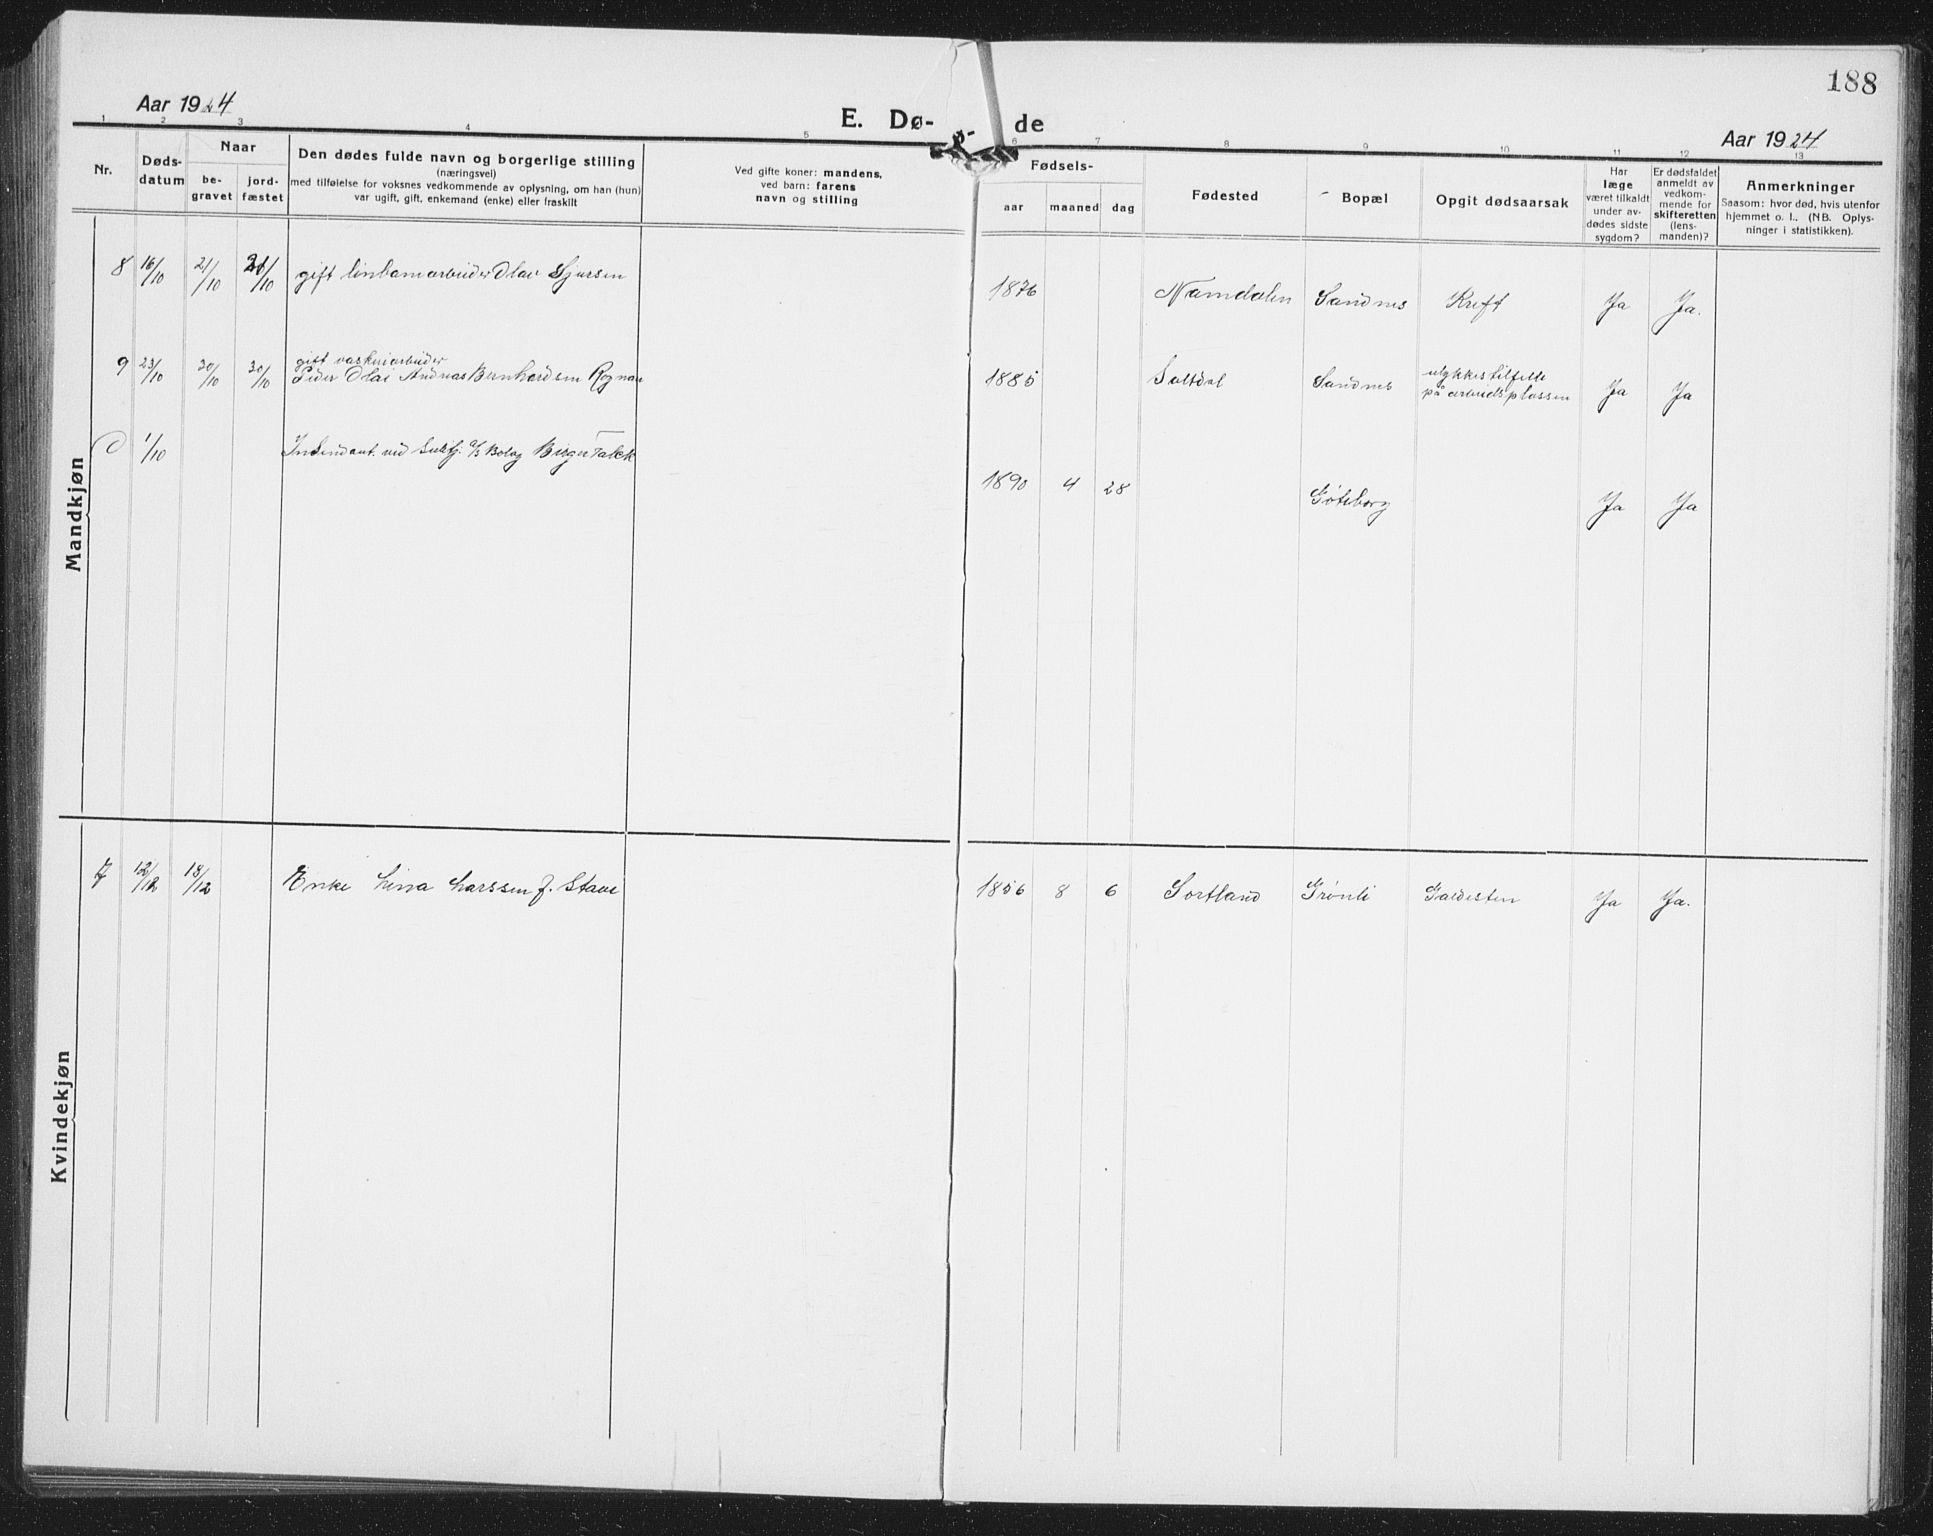 188
Aar 1924
E. Dø-
de
Aar 1924
1 2 3 4 5 6 7 8 9 10 11 12 13
Nr.
Døds-
datum
Naar
be-
gravet
jord-
fæstet
Den dødes fulde navn og borgerlige stilling
(næringsvei)
med tilføielse for voksnes vedkommende av oplysning, om han (hun)
var ugift, gift, enkemand (enke) eller fraskilt
Ved gifte koner: mandens,
ved barn: farens
navn og stilling
Fødsels-
aar maaned dag
Fødested
Bopæl
Opgit dødsaarsak
Har
læge
været tilkaldt
under av-
dødes sidste
sygdom?
Er dødsfaldet
anmeldt av
vedkom-
mende for
skifteretten
(lens-
manden)?
Anmerkninger
Saasom: hvor død, hvis utenfor
hjemmet o. l., (NB. Oplys-
ninger i statistikken).
Mandkjøn
8 16/10 21/10 21/10 gift linbanearbeider Olav Sjursen 1876 Namdalen Sandnes Kreft Ja Ja.
gift vaskeriarbeider
9 23/10 30/10 30/10 Peder Olai Andreas Bernhardsen Rognan 1885 Saltdal Sandnes ulykkestilfelle
på arbeidsplassen Ja Ja
1/10 Intendant ved A/S Bolag Birger 1890 4 28 Gøteborg Ja Ja
Kvindekjøn
7 12/12 18/12 Enke Lina Larssen f. Stave 1856 8 6 Sortland Grønli Galdesten Ja Ja.